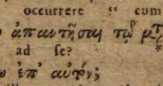 occurrere " cum
ἀπαντῆσαι τῷ μτ
ad se?
ἐπ' αυτόν;